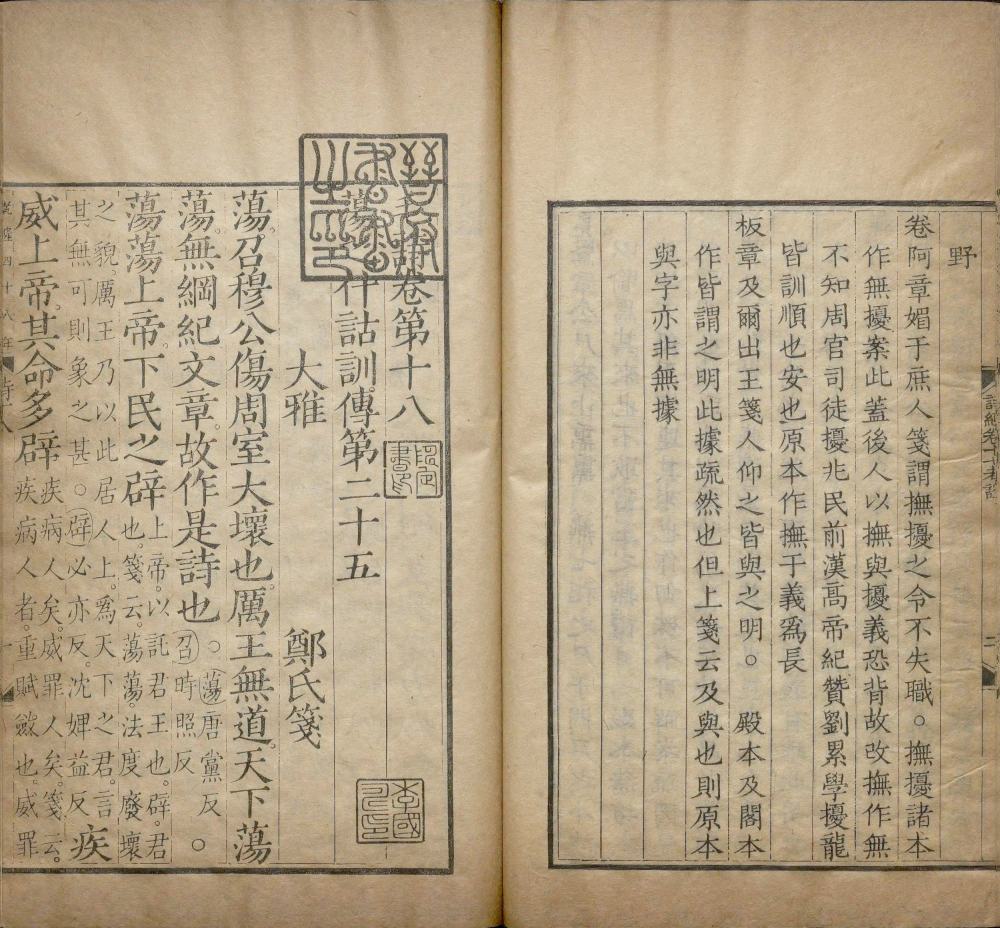 野
卷阿章媚于庶人箋謂撫擾之令不失職○撫擾諸本
作無擾案此蓋後人以撫與擾義恐背故改撫作無
不知周官司徒擾兆民前漢髙帝紀贊劉累學擾龍
皆訓順也安也原本作撫于義爲長
板章及爾出王箋人仰之皆與之明○殿本及閣本
作皆謂之明此據疏然也但上箋云及與也則原本
與字亦非無據
詩卷第十八
蕩之什詁訓傳第二十五
大雅 鄭氏箋
蕩。召穆公傷周室大壞也。厲王無道。天下蕩
蕩。無綱紀文章。故作是詩也○蕩唐黨反召時照反○
蕩蕩上帝。下民之辟上帝。以託君王也。辟。君也。箋云。蕩蕩。法度廢壞
之貌。厲王乃以此居人上。爲天下之君。言其無可則象之甚。○辟必亦反。沈婢益反疾
威上帝。其命多辟疾病人矣。威罪人矣。箋云。疾病人者。重賦斂也。威罪